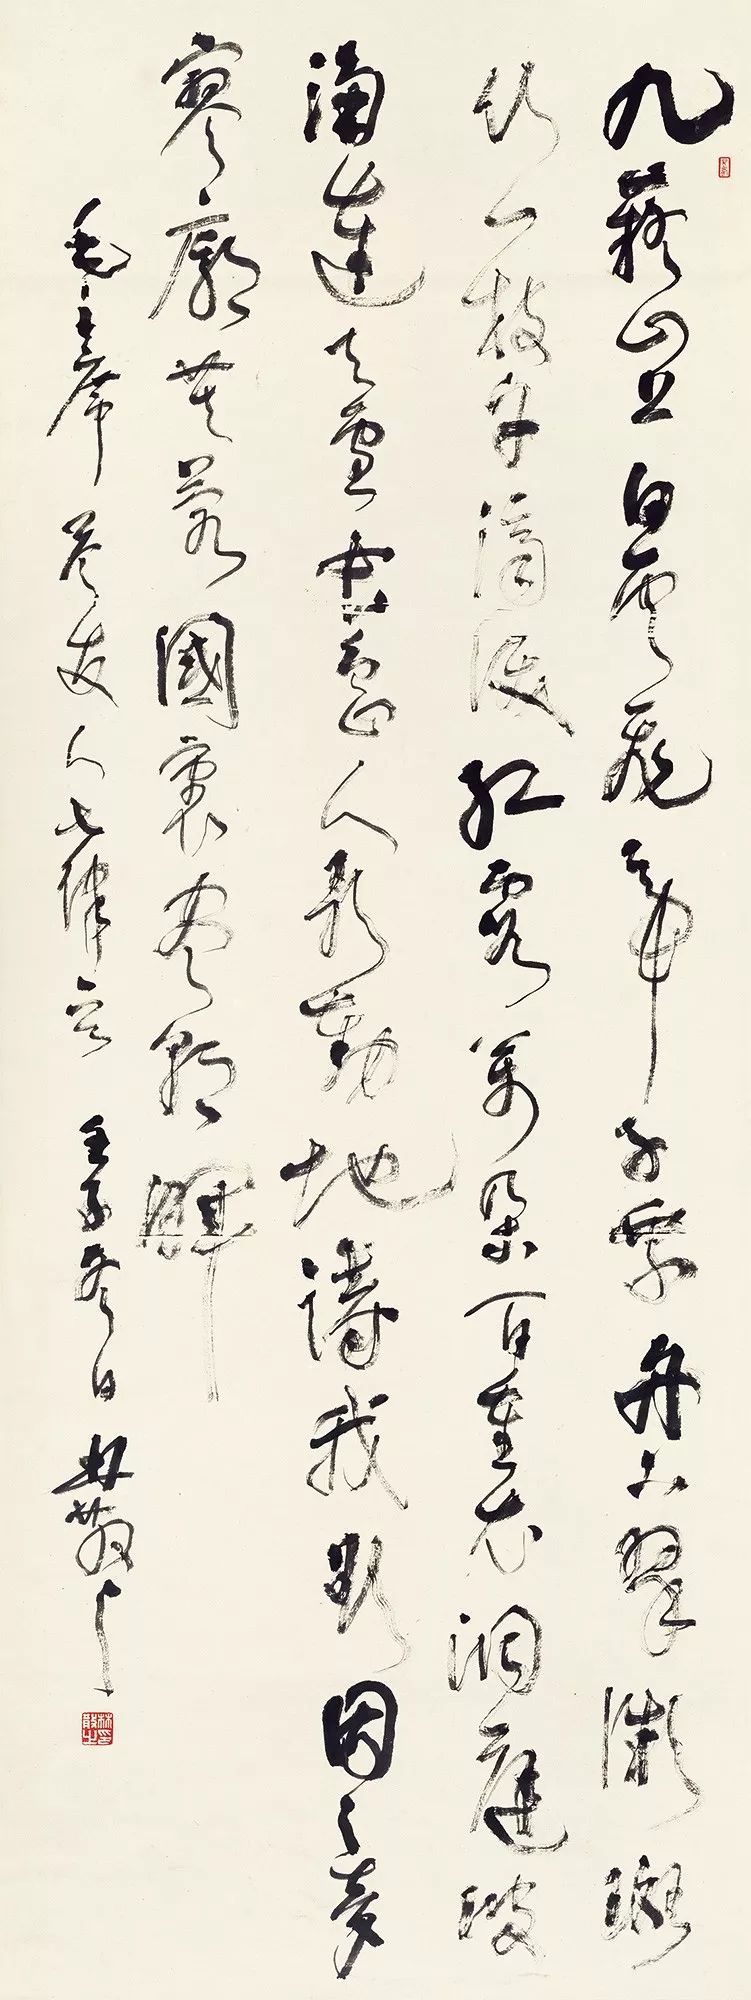 九嶷山上白雲飛帝子乘風下翠微斑
竹一枝千滴淚紅霞萬朵百重衣洞庭波
涌連天雪長島人歌動地詩我欲因之夢
寥廓芙蓉國裏盡朝暉
毛主席答友人七律一首 壬子冬日 林散之
林散之印